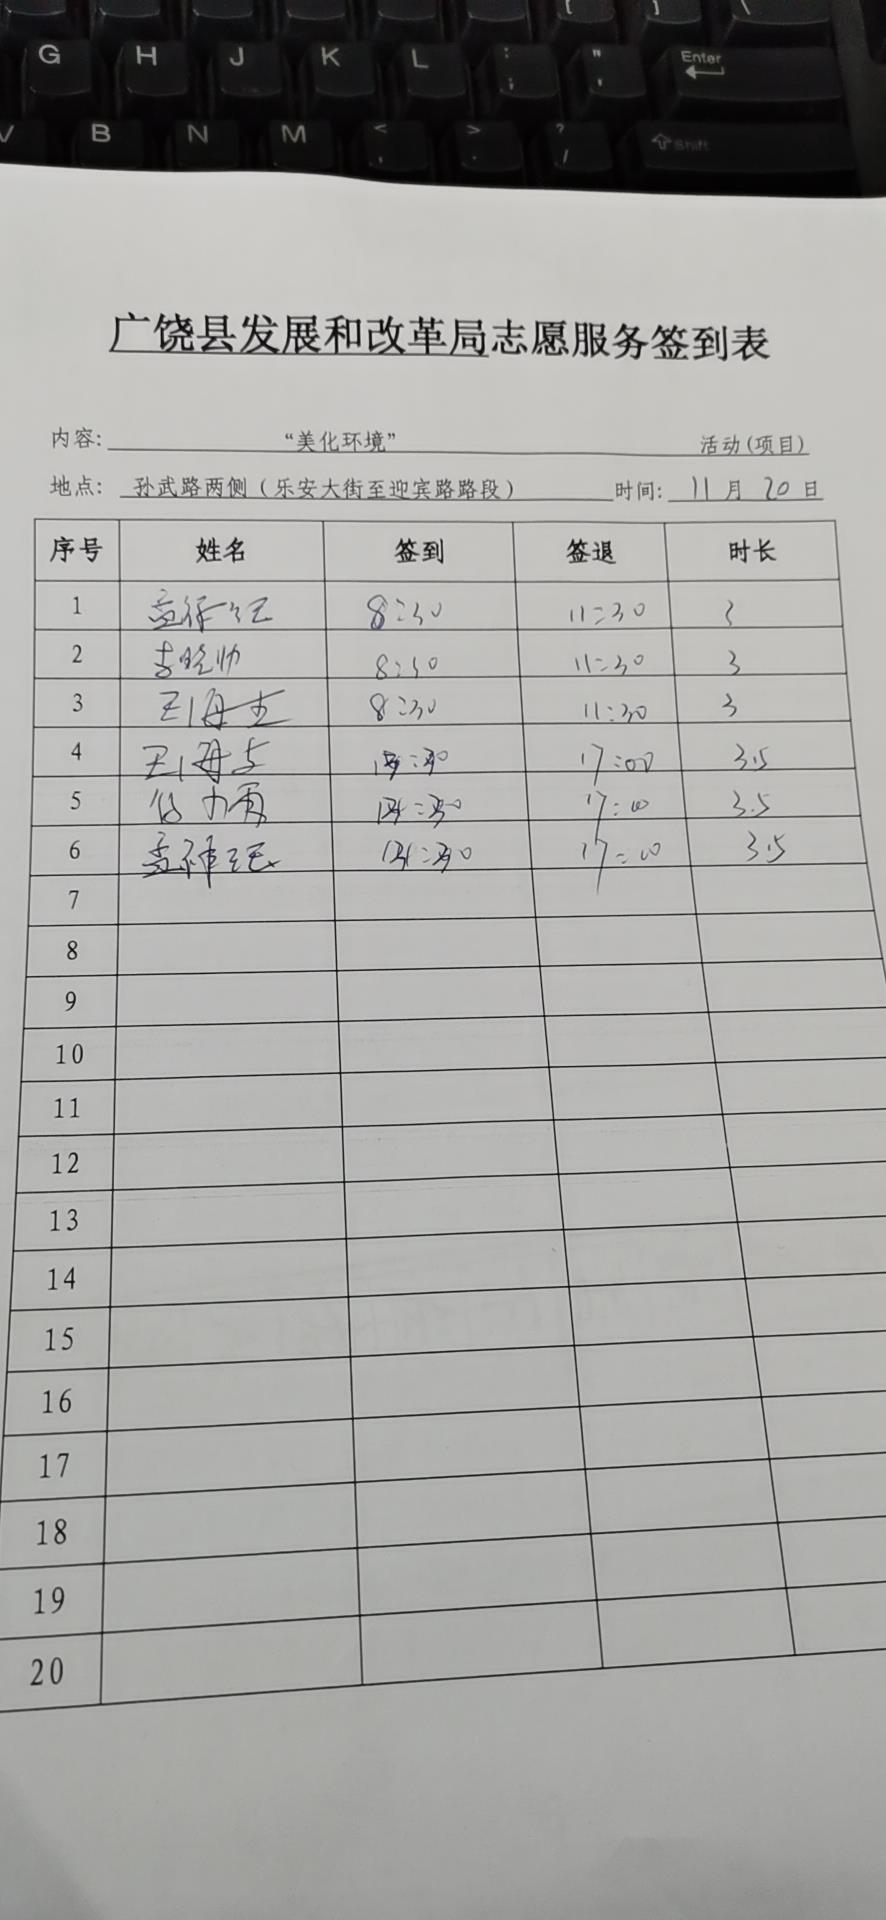 G H J K L : ; " ' Enter
V B N M < , > . ? / Shift
广饶县发展和改革局志愿服务签到表
内容: “美化环境” 活动(项目)
地点: 孙武路两侧(乐安大街至迎宾路路段) 时间: 11月20日
序号 姓名 签到 签退 时长
1 8:30 11:30 3
2 李晓帅 8:30 11:30 3
3 8:30 11:30 3
4 13:30 17:00 3.5
5 13:30 17:00 3.5
6 13:30 17:00 3.5
7
8
9
10
11
12
13
14
15
16
17
18
19
20